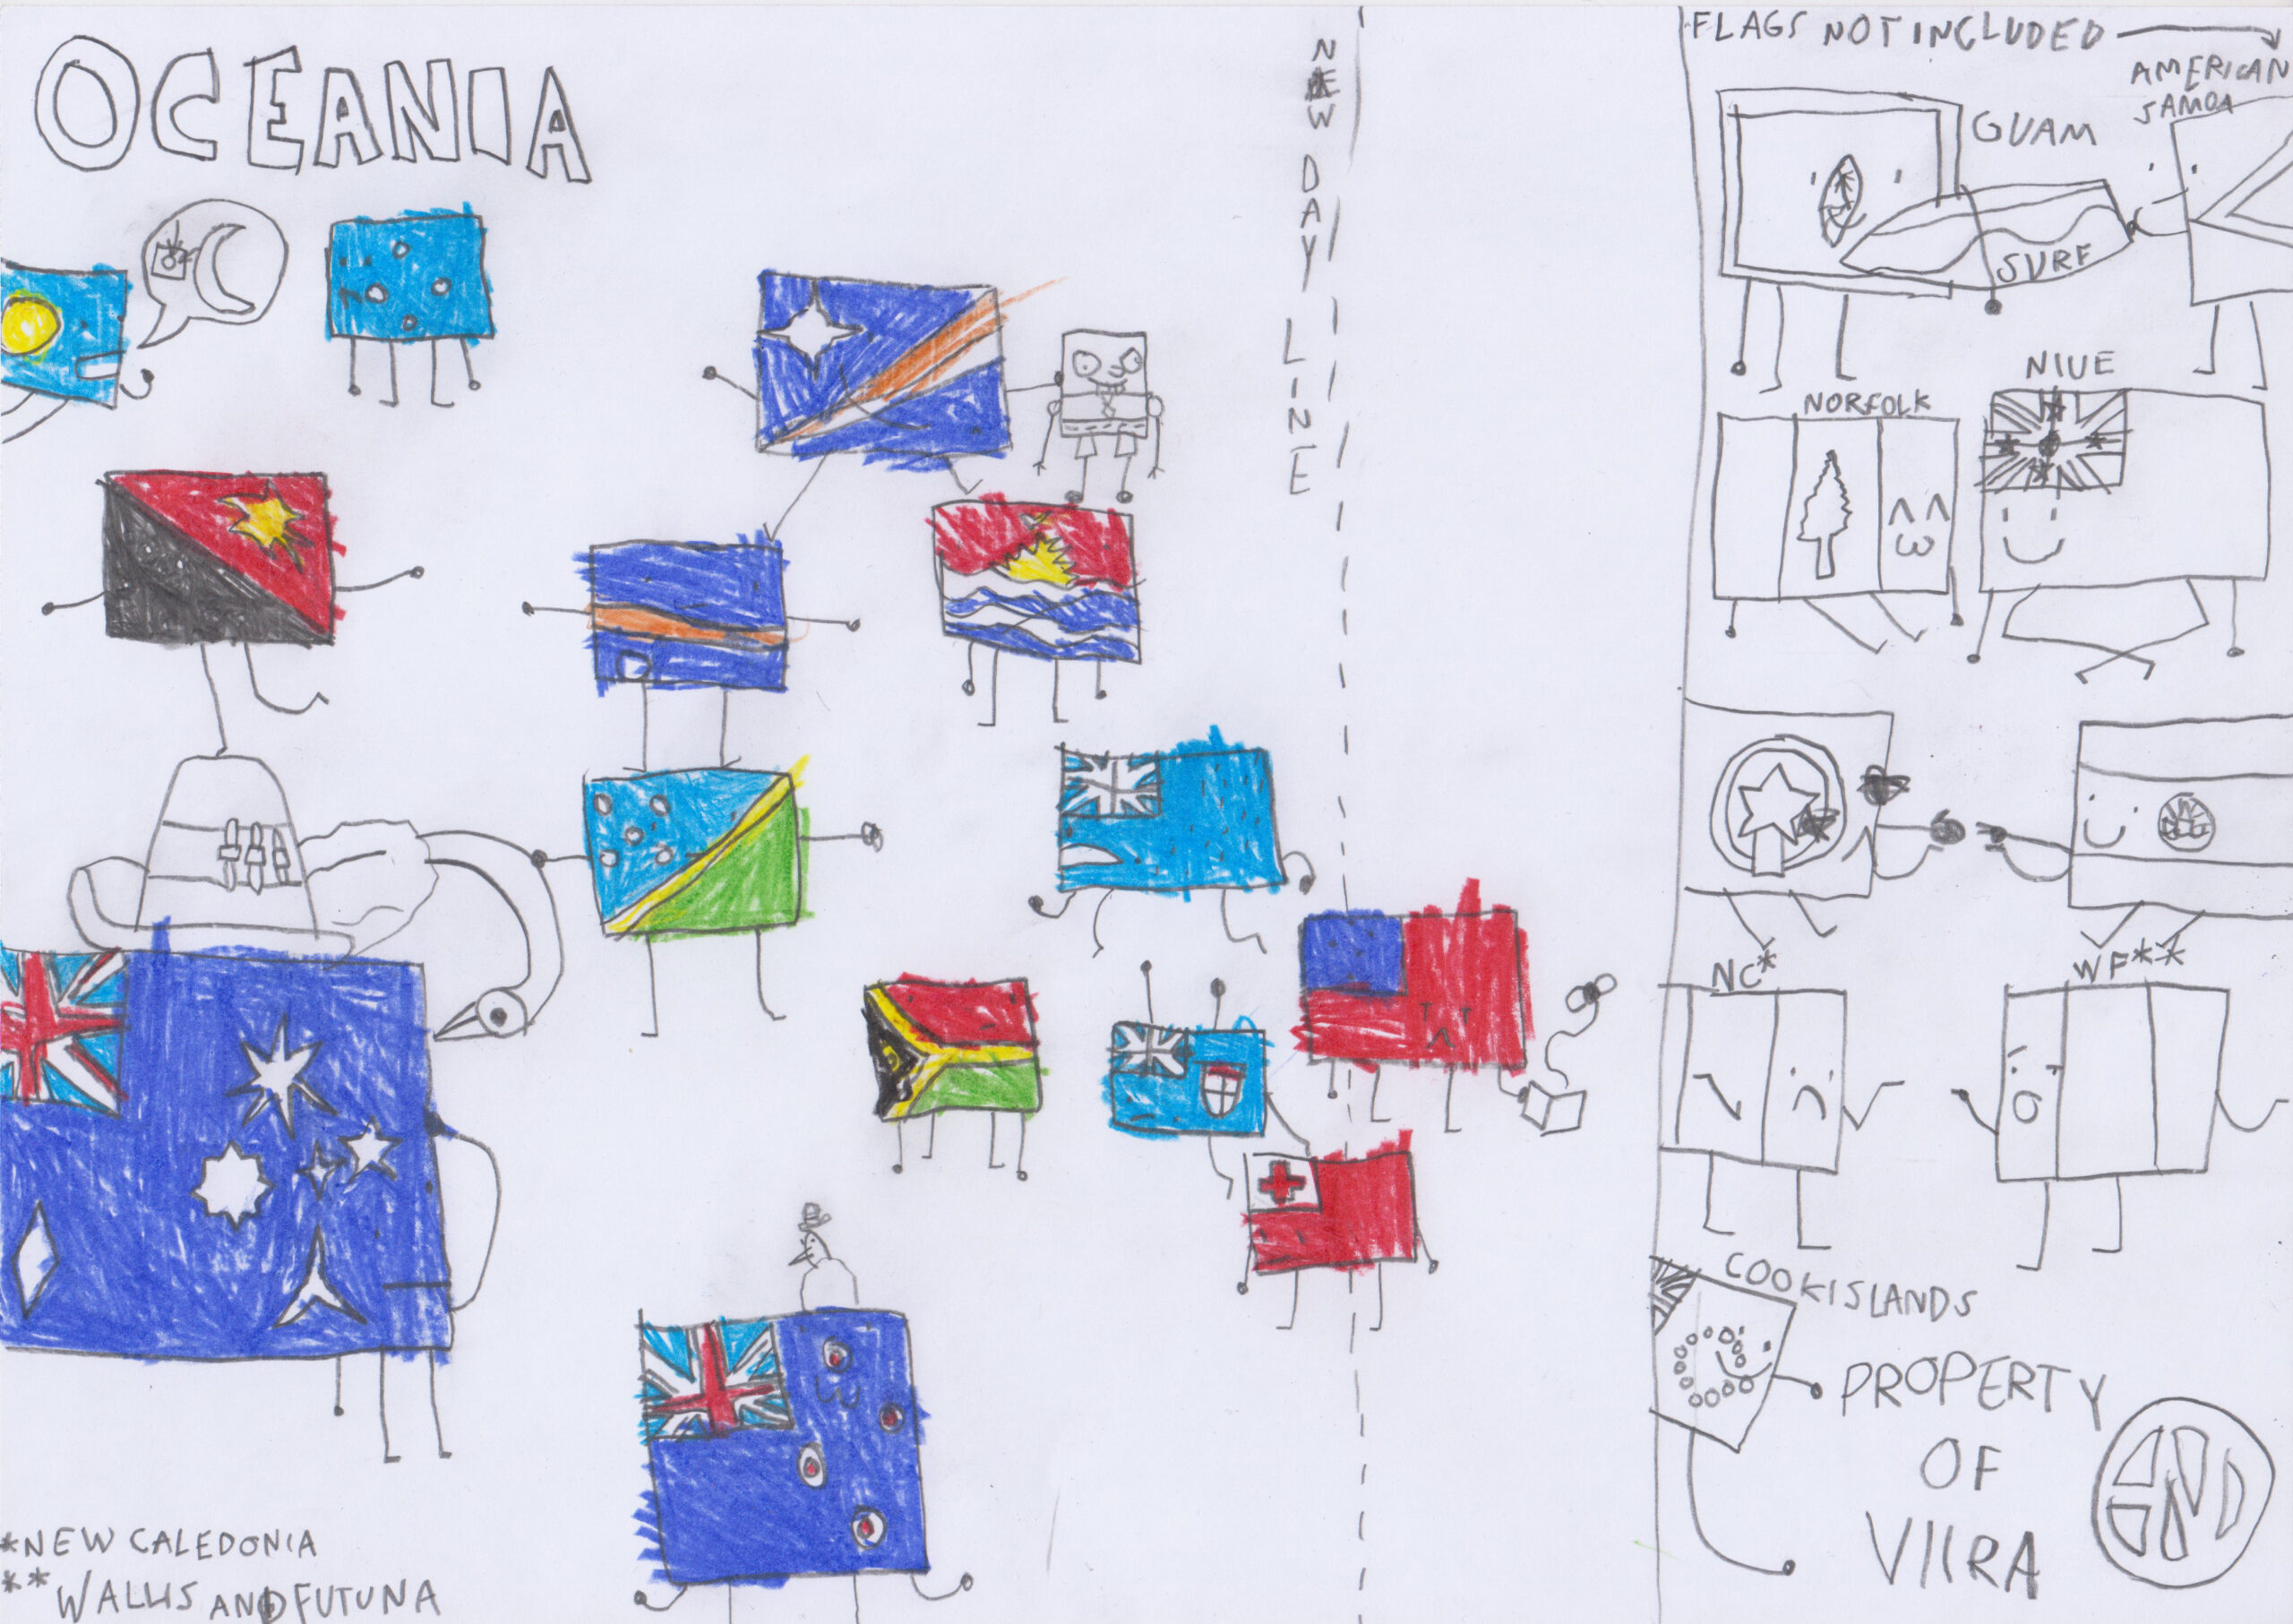 OCEANIA
NEW DAY LINE
FLAGS NOT INCLUDED
AMERICAN
SAMOA
GUAM
SURF
NORFOLK
NIUE
NC*
WF**
COOK ISLANDS
PROPERTY
OF
VIIRA
END
*NEW CALEDONIA
**WALLIS AND FUTUNA